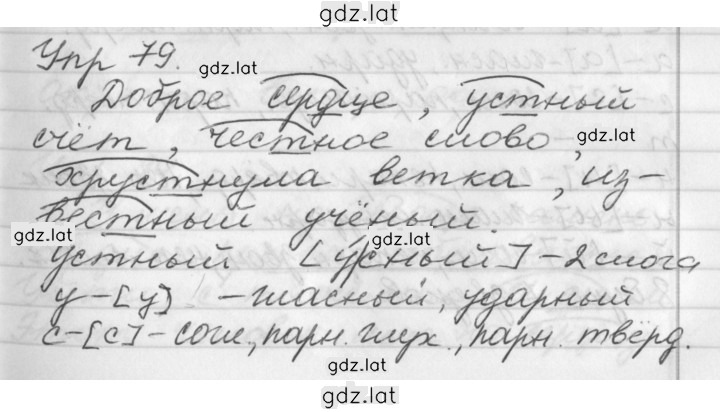 gdz.lat
Упр 79.
gdz.lat
Доброе сердце, устный
счёт, честное слово,
gdz.lat
хрустнула ветка, из-
вестный учёный.
gdz.lat
gdz.lat
устный [у́сный] - 2 слога
у - [у] - гласный, ударный
с - [с] - согл., парн. глух., парн. твёрд.
gdz.lat
gdz.lat